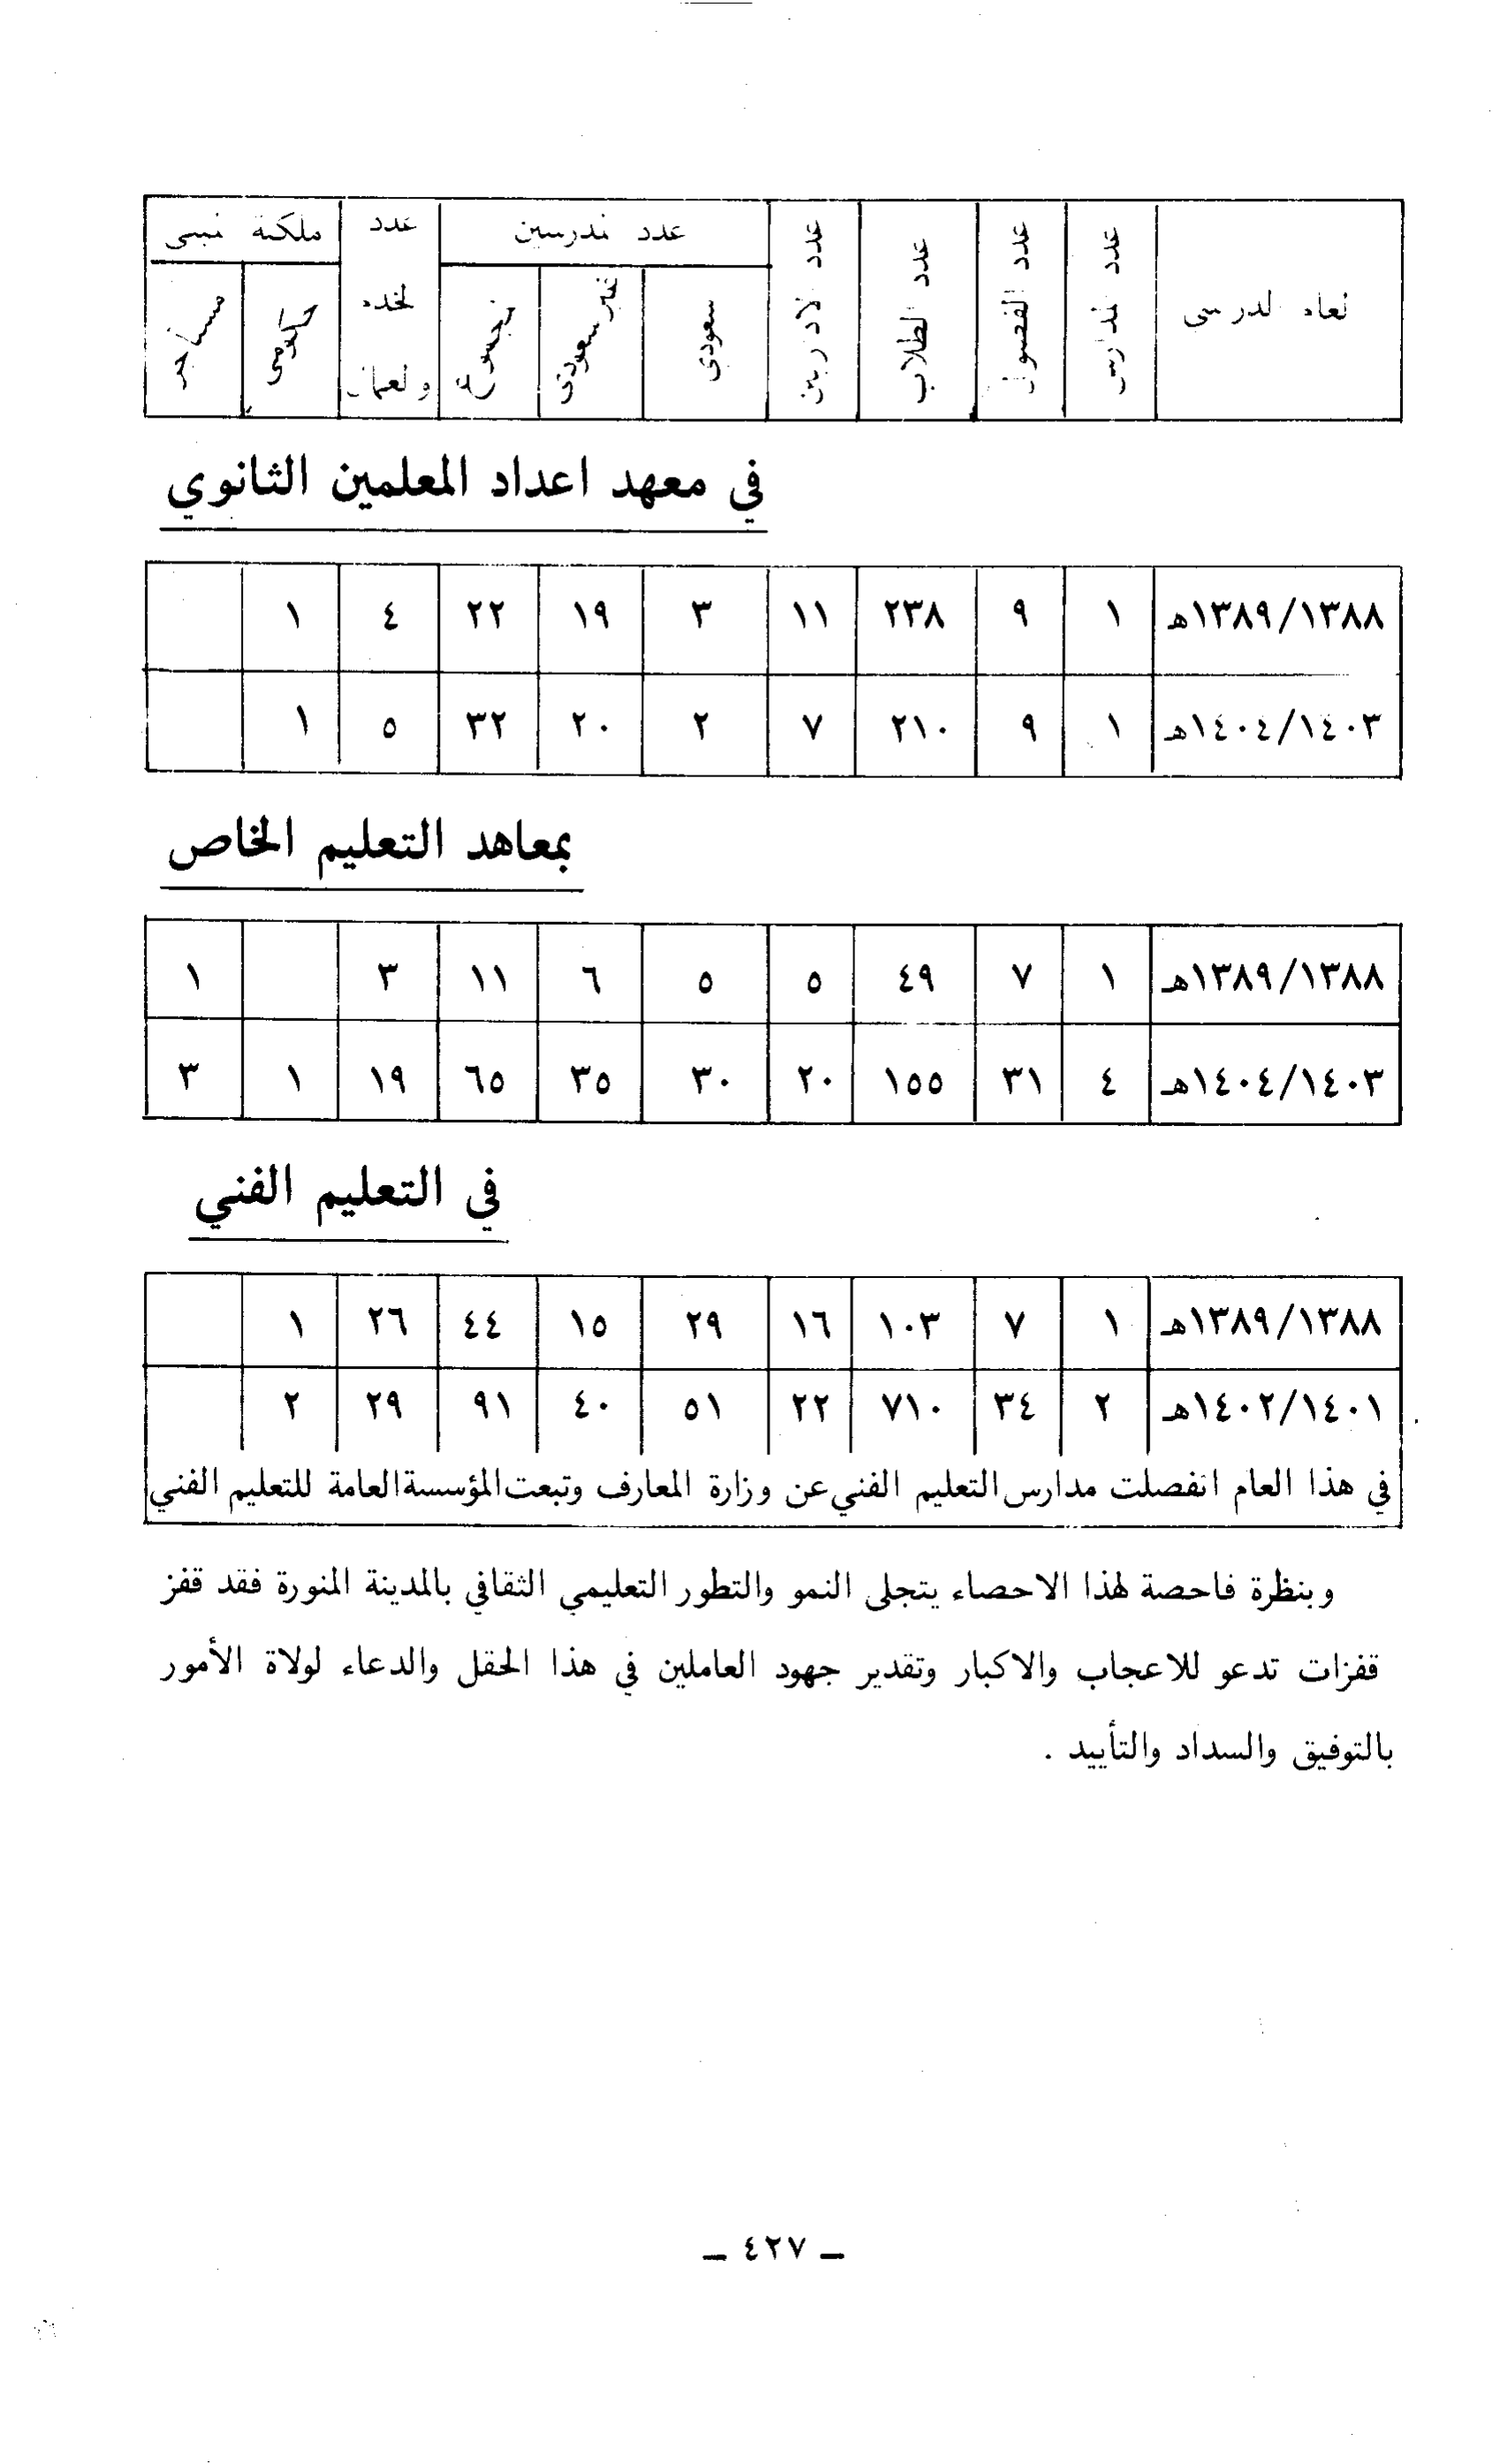 العام الدراسي عدد المدارس عدد الفصول عدد الطلاب عدد الاداريين عدد المدرسين سعودي غير سعودي المجموع عدد الخدم والعمال ملكية المبنى حكومي مستأجر
في معهد اعداد المعلمين الثانوي
١٣٨٩/١٣٨٨هـ ١ ٩ ٢٣٨ ١١ ٣ ١٩ ٢٢ ٤ ١
١٤٠٤/١٤٠٣هـ ١ ٩ ٢١٠ ٧ ٢ ٢٠ ٣٢ ٥ ١
بمعاهد التعليم الخاص
١٣٨٩/١٣٨٨هـ ١ ٧ ٤٩ ٥ ٥ ٦ ١١ ٣ ١
١٤٠٤/١٤٠٣هـ ٤ ٣١ ١٥٥ ٢٠ ٣٠ ٣٥ ٦٥ ١٩ ١ ٣
في التعليم الفني
١٣٨٩/١٣٨٨هـ ١ ٧ ١٠٣ ١٦ ٢٩ ١٥ ٤٤ ٢٦ ١
١٤٠٢/١٤٠١هـ ٢ ٣٤ ٧١٠ ٢٢ ٥١ ٤٠ ٩١ ٢٩ ٢
في هذا العام انفصلت مدارس التعليم الفني عن وزارة المعارف وتبعت المؤسسة العامة للتعليم الفني
وبنظرة فاحصة لهذا الاحصاء يتجلى النمو والتطور التعليمي الثقافي بالمدينة المنورة فقد قفز
قفزات تدعو للاعجاب والاكبار وتقدير جهود العاملين في هذا الحقل والدعاء لولاة الأمور
بالتوفيق والسداد والتأييد .
– ٤٢٧ –